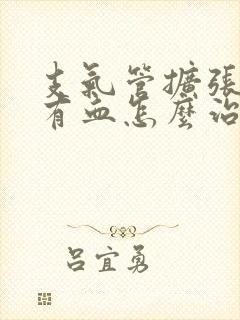 支氣管擴張
有血怎麼治
呂宜勇